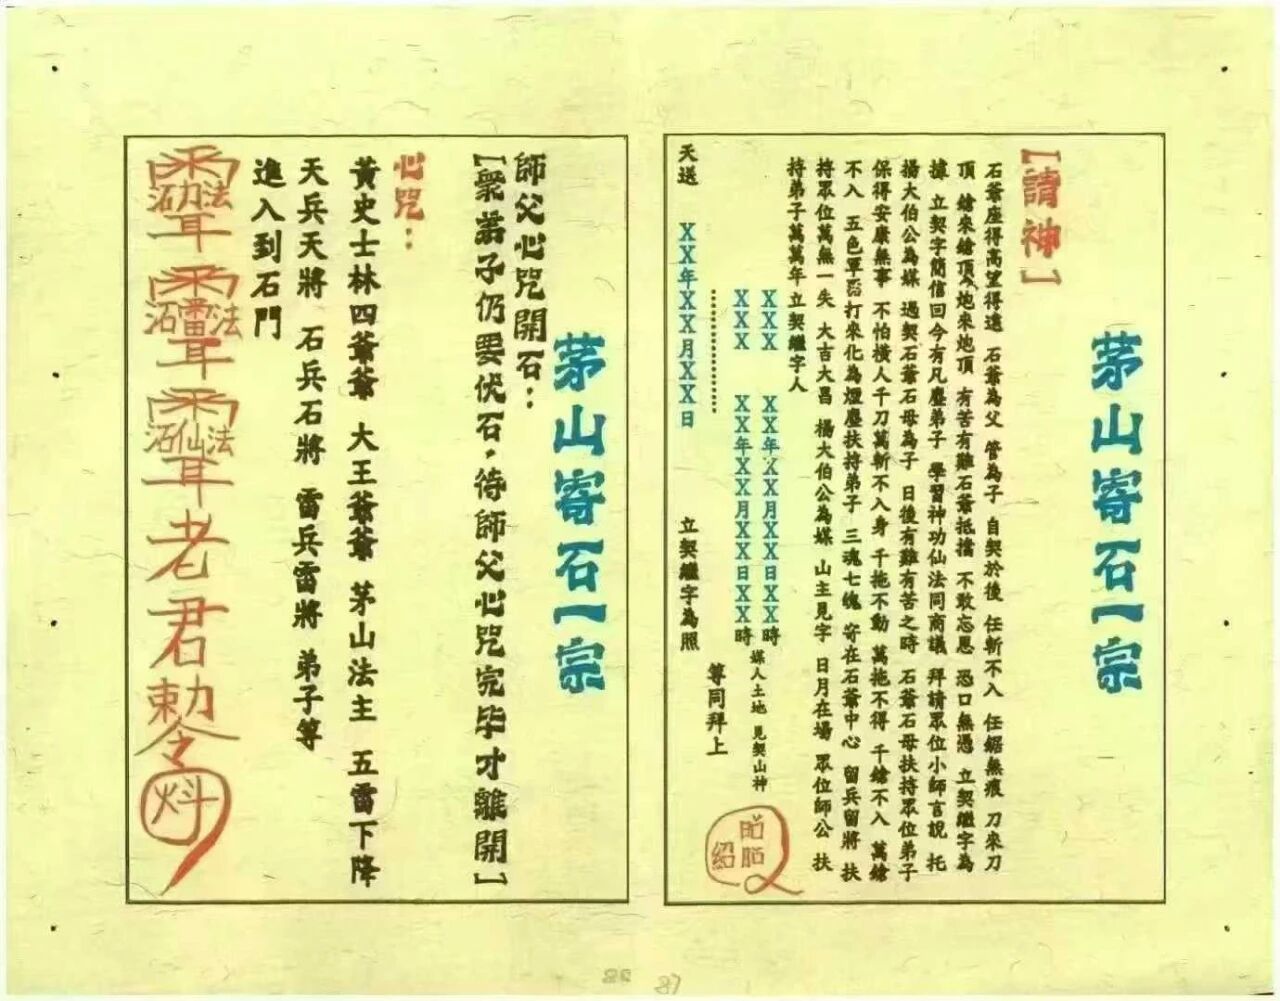 茅山寄石一宗
【請神】
石爺座得高望得遠 石爺為父 管為子 自契於後 任斬不入 任鋸無痕 刀來刀
頂 鎗來鎗頂 炮來炮頂 有苦有難石爺抵擋 不敢忘恩 恐口無憑 立契繼字為
據 立契字簡信回今有凡塵弟子 學習神功仙法同商議 拜請眾位小師言說 托
楊大伯公為媒 過契石爺石母為子 日後有難有苦之時 石爺石母扶持眾位弟子
保得安康無事 不怕橫人千刀萬斬不入身 千拖不動 萬拖不得 千鎗不入 萬鎗
不入 五色軍器打來化為煙塵扶持弟子 三魂七魄 寄在石爺中心 留兵留將 扶
持眾位萬無一失 大吉大昌 楊大伯公為媒 山主見字 日月在場 眾位師公 扶
持弟子萬萬年 立契繼字人
XXX XX年XX月XX日XX時
媒人土地 見契山神
XXX XX年XX月XX日XX時
等同拜上
天送 XX年XX月XX日 立契繼字為照
茅山寄石一宗
師父心咒開石：
【眾弟子仍要伏石，待師父心咒完毕才離開】
心咒：
黃史士林四爺爺 大王爺爺 茅山法主 五雷下降
天兵天將 石兵石將 雷兵雷將 弟子等
進入到石門
老君敕令